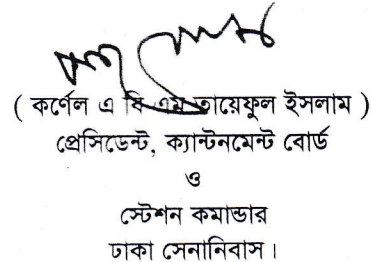 ( কর্ণেল এ বি এম তায়েফুল ইসলাম )
প্রেসিডেন্ট, ক্যান্টনমেন্ট বোর্ড
ও
স্টেশন কমান্ডার
ঢাকা সেনানিবাস ।